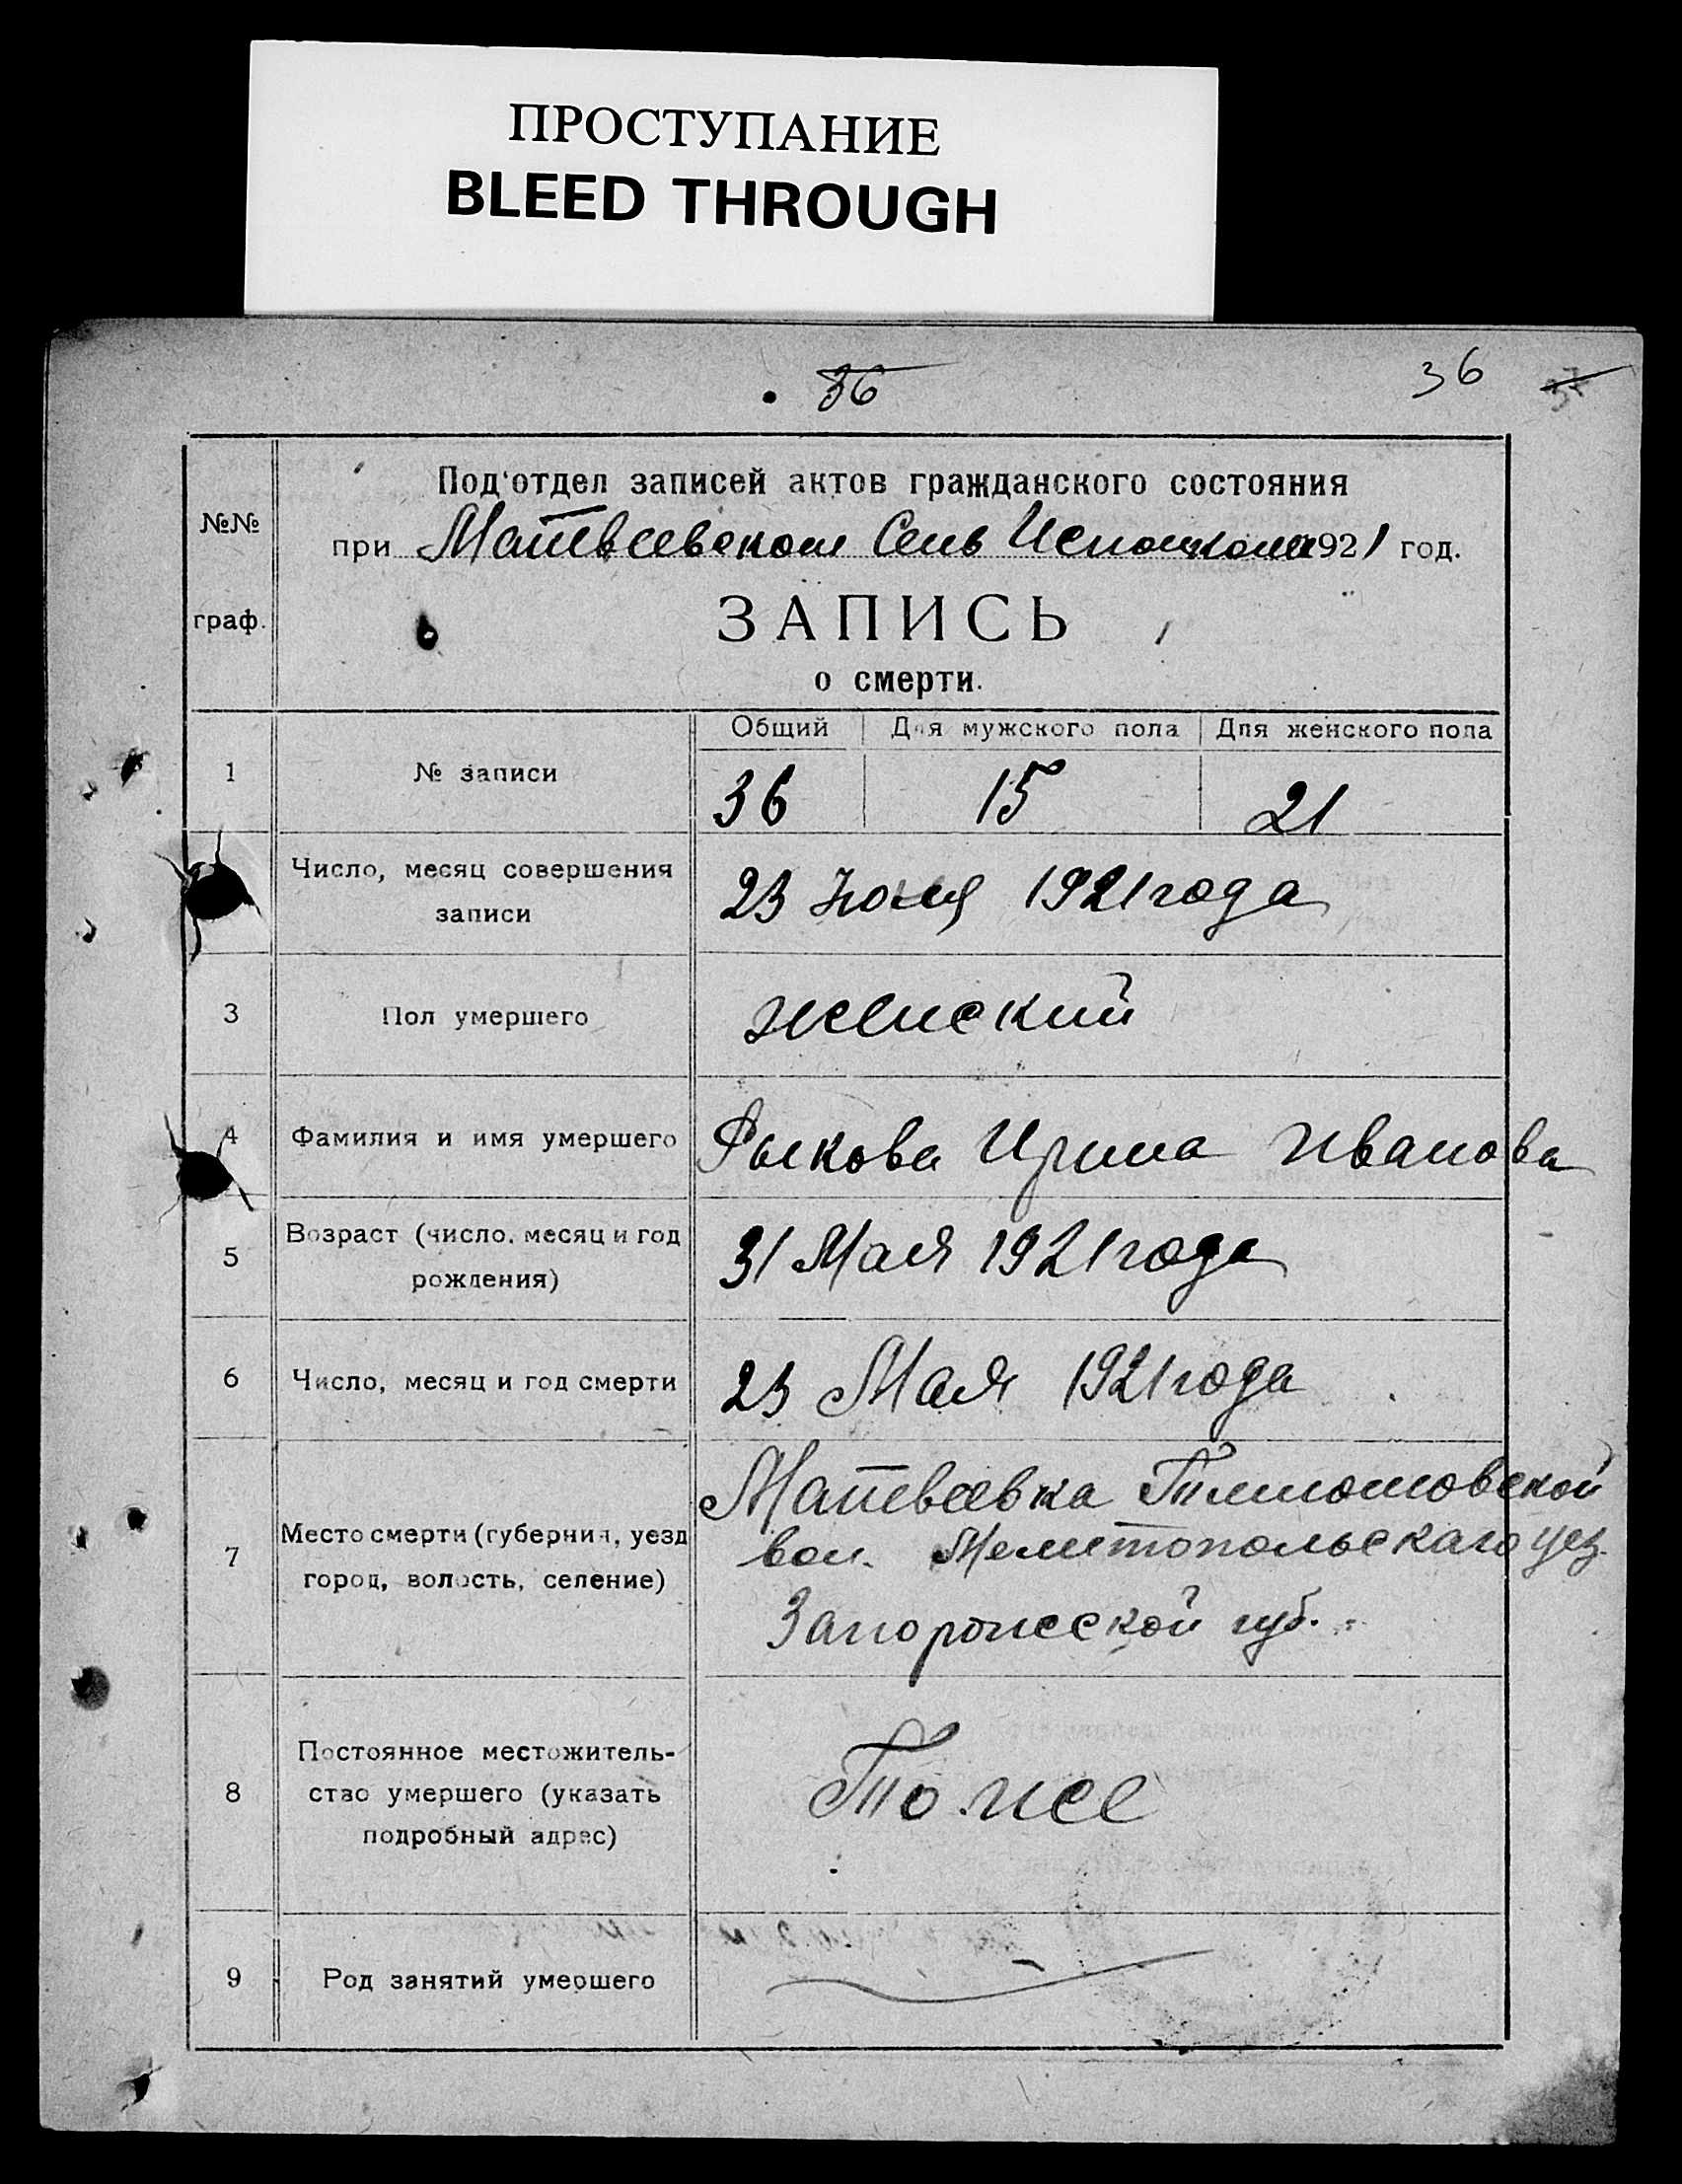 ПРОСТУПАНИЕ
BLEED THROUGH
36 36 37
Под‘отдел записей актов гражданского состояния
№№
при Матвеевском Сель Исполкоме 1921 год.
граф. ЗАПИСЬ
о смерти.
Общий Для мужского пола Для женского пола
1 № записи 36 15 21
Число, месяц совершения
записи
23 Июня 1921 года
3 Пол умершего женский
4 Фамилия и имя умершего Рыкова Ирина Иванова
5 Возраст (число, месяц и год
рождения)
31 Мая 1921 года
6 Число, месяц и год смерти 23 Мая 1921 года
7 Место смерти (губерния, уезд
город, волость, селение)
Матвеевка Тимошовской
вол. Мелитопольскаго уез.
Запорожской губ.
8 Постоянное местожитель-
ство умершего (указать
подробный адрес)
Тоже
9 Род занятий умершего